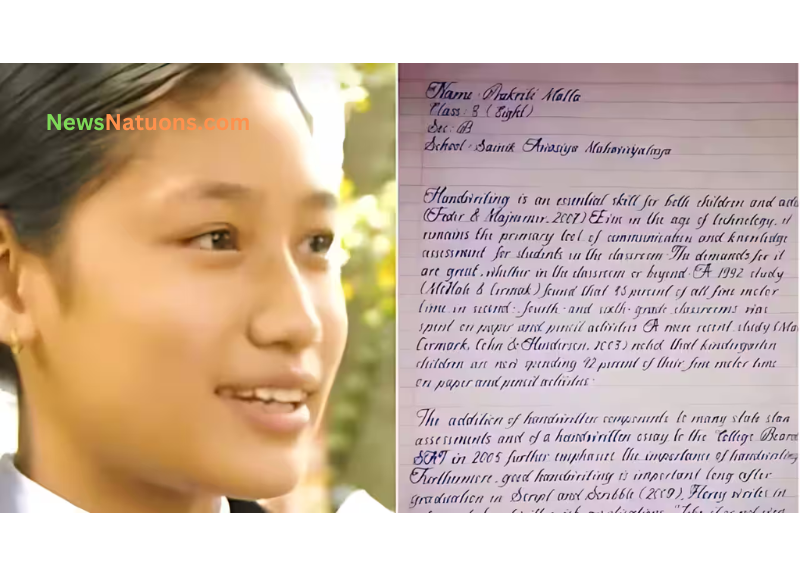 NewsNatuons.com
Name : Prakriti Malla
Class : 8 (Eight)
Sec : B
School : Sainik Awasiya Mahavidyalaya
Handwriting is an essential skill for both children and adu
(Feder & Majnemer, 2007) Even in the age of technology, it
remains the primary tool of communication and knowledge
assessment for students in the classroom. The demands for it
are great, whether in the classroom or beyond. A 1992 study
(McHale & Cermak) found that 85 percent of all fine motor
time in second-, fourth- and sixth-grade classrooms was
spent on paper and pencil activities. A more recent study (Ma
Cermark, Cohn & Henderson, 2003) noted that kindergarten
children are now spending 42 percent of their fine motor time
on paper and pencil activities.
The addition of handwritten components to many state stan
assessments and of a handwritten essay to the College Board
SAT in 2005 further emphasize the importance of handwriting
Furthermore, good handwriting is important long after
graduation in Script and Scribble (2009), Florey writes in